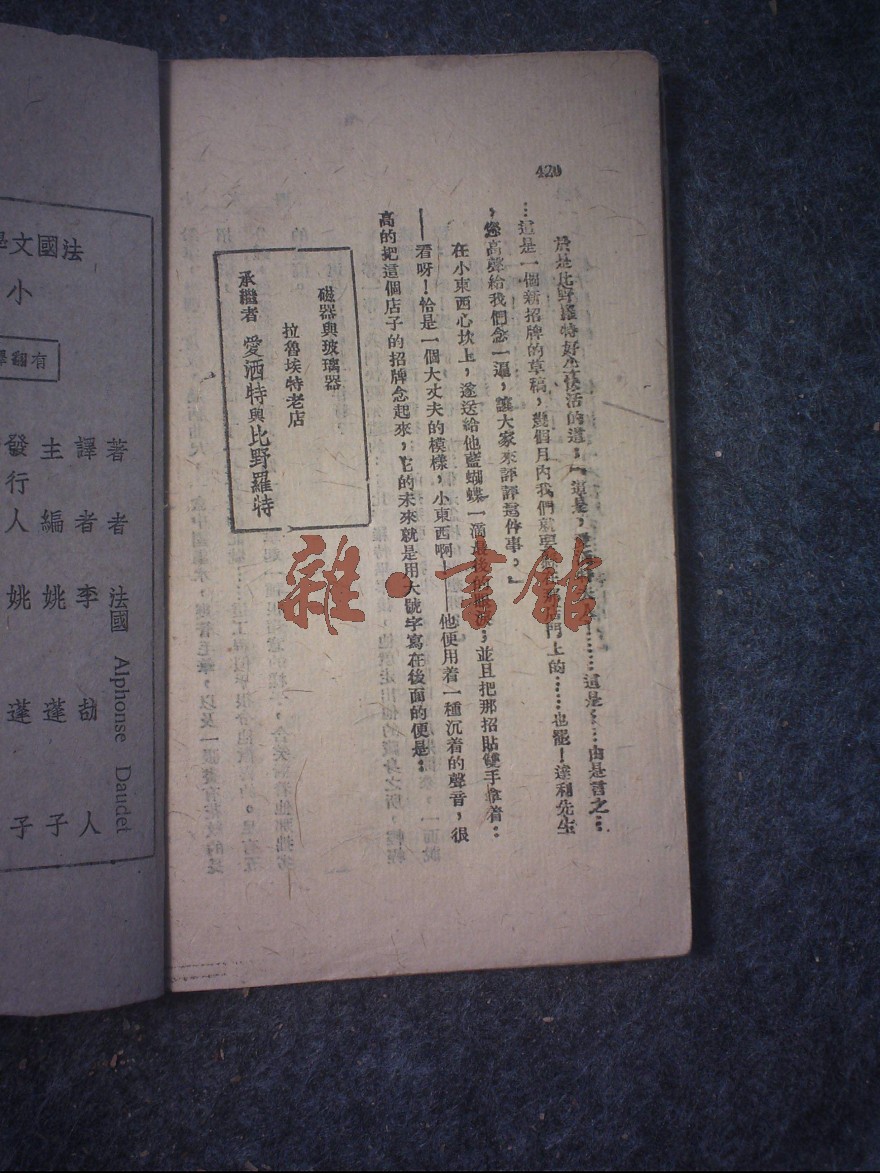 420
於是比野羅特好生快活的道，「這是，
……這是……由是言之…
…這是一個新招牌的草稿，幾個月內我們就要
店門上的……也罷！達利先生
，您高聲給我們念一遍，讓大家來評評這件事。」
在小東西心坎上，遂送給他藍蝴蝶一滴最後的眼淚；並且把那招貼雙手拿着：
——看呀！恰是一個大丈夫的模樣，小東西啊！——他便用着一種沉着的聲音，很
高的把這個店子的招牌念起來，它的未來就是用大號字寫在後面的便是：
磁器與玻璃器
拉魯埃特老店
承繼者 愛洒特與比野羅特
法國文學
小
有翻譯
著者 法國 Alphonse Daudet
譯者 李劼人
主編 姚蓬子
發行人 姚蓬子
雜·書館